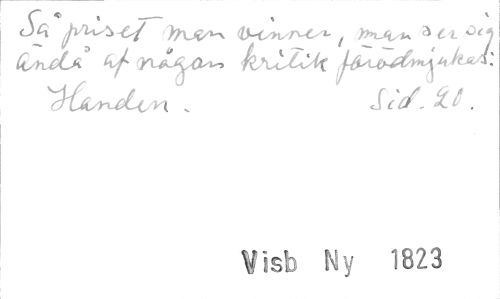 Så priset man vinner, man ser sig
ändå af någon kritik förödmjukas:
Handen. Sid. 20.
Visb Ny 1823